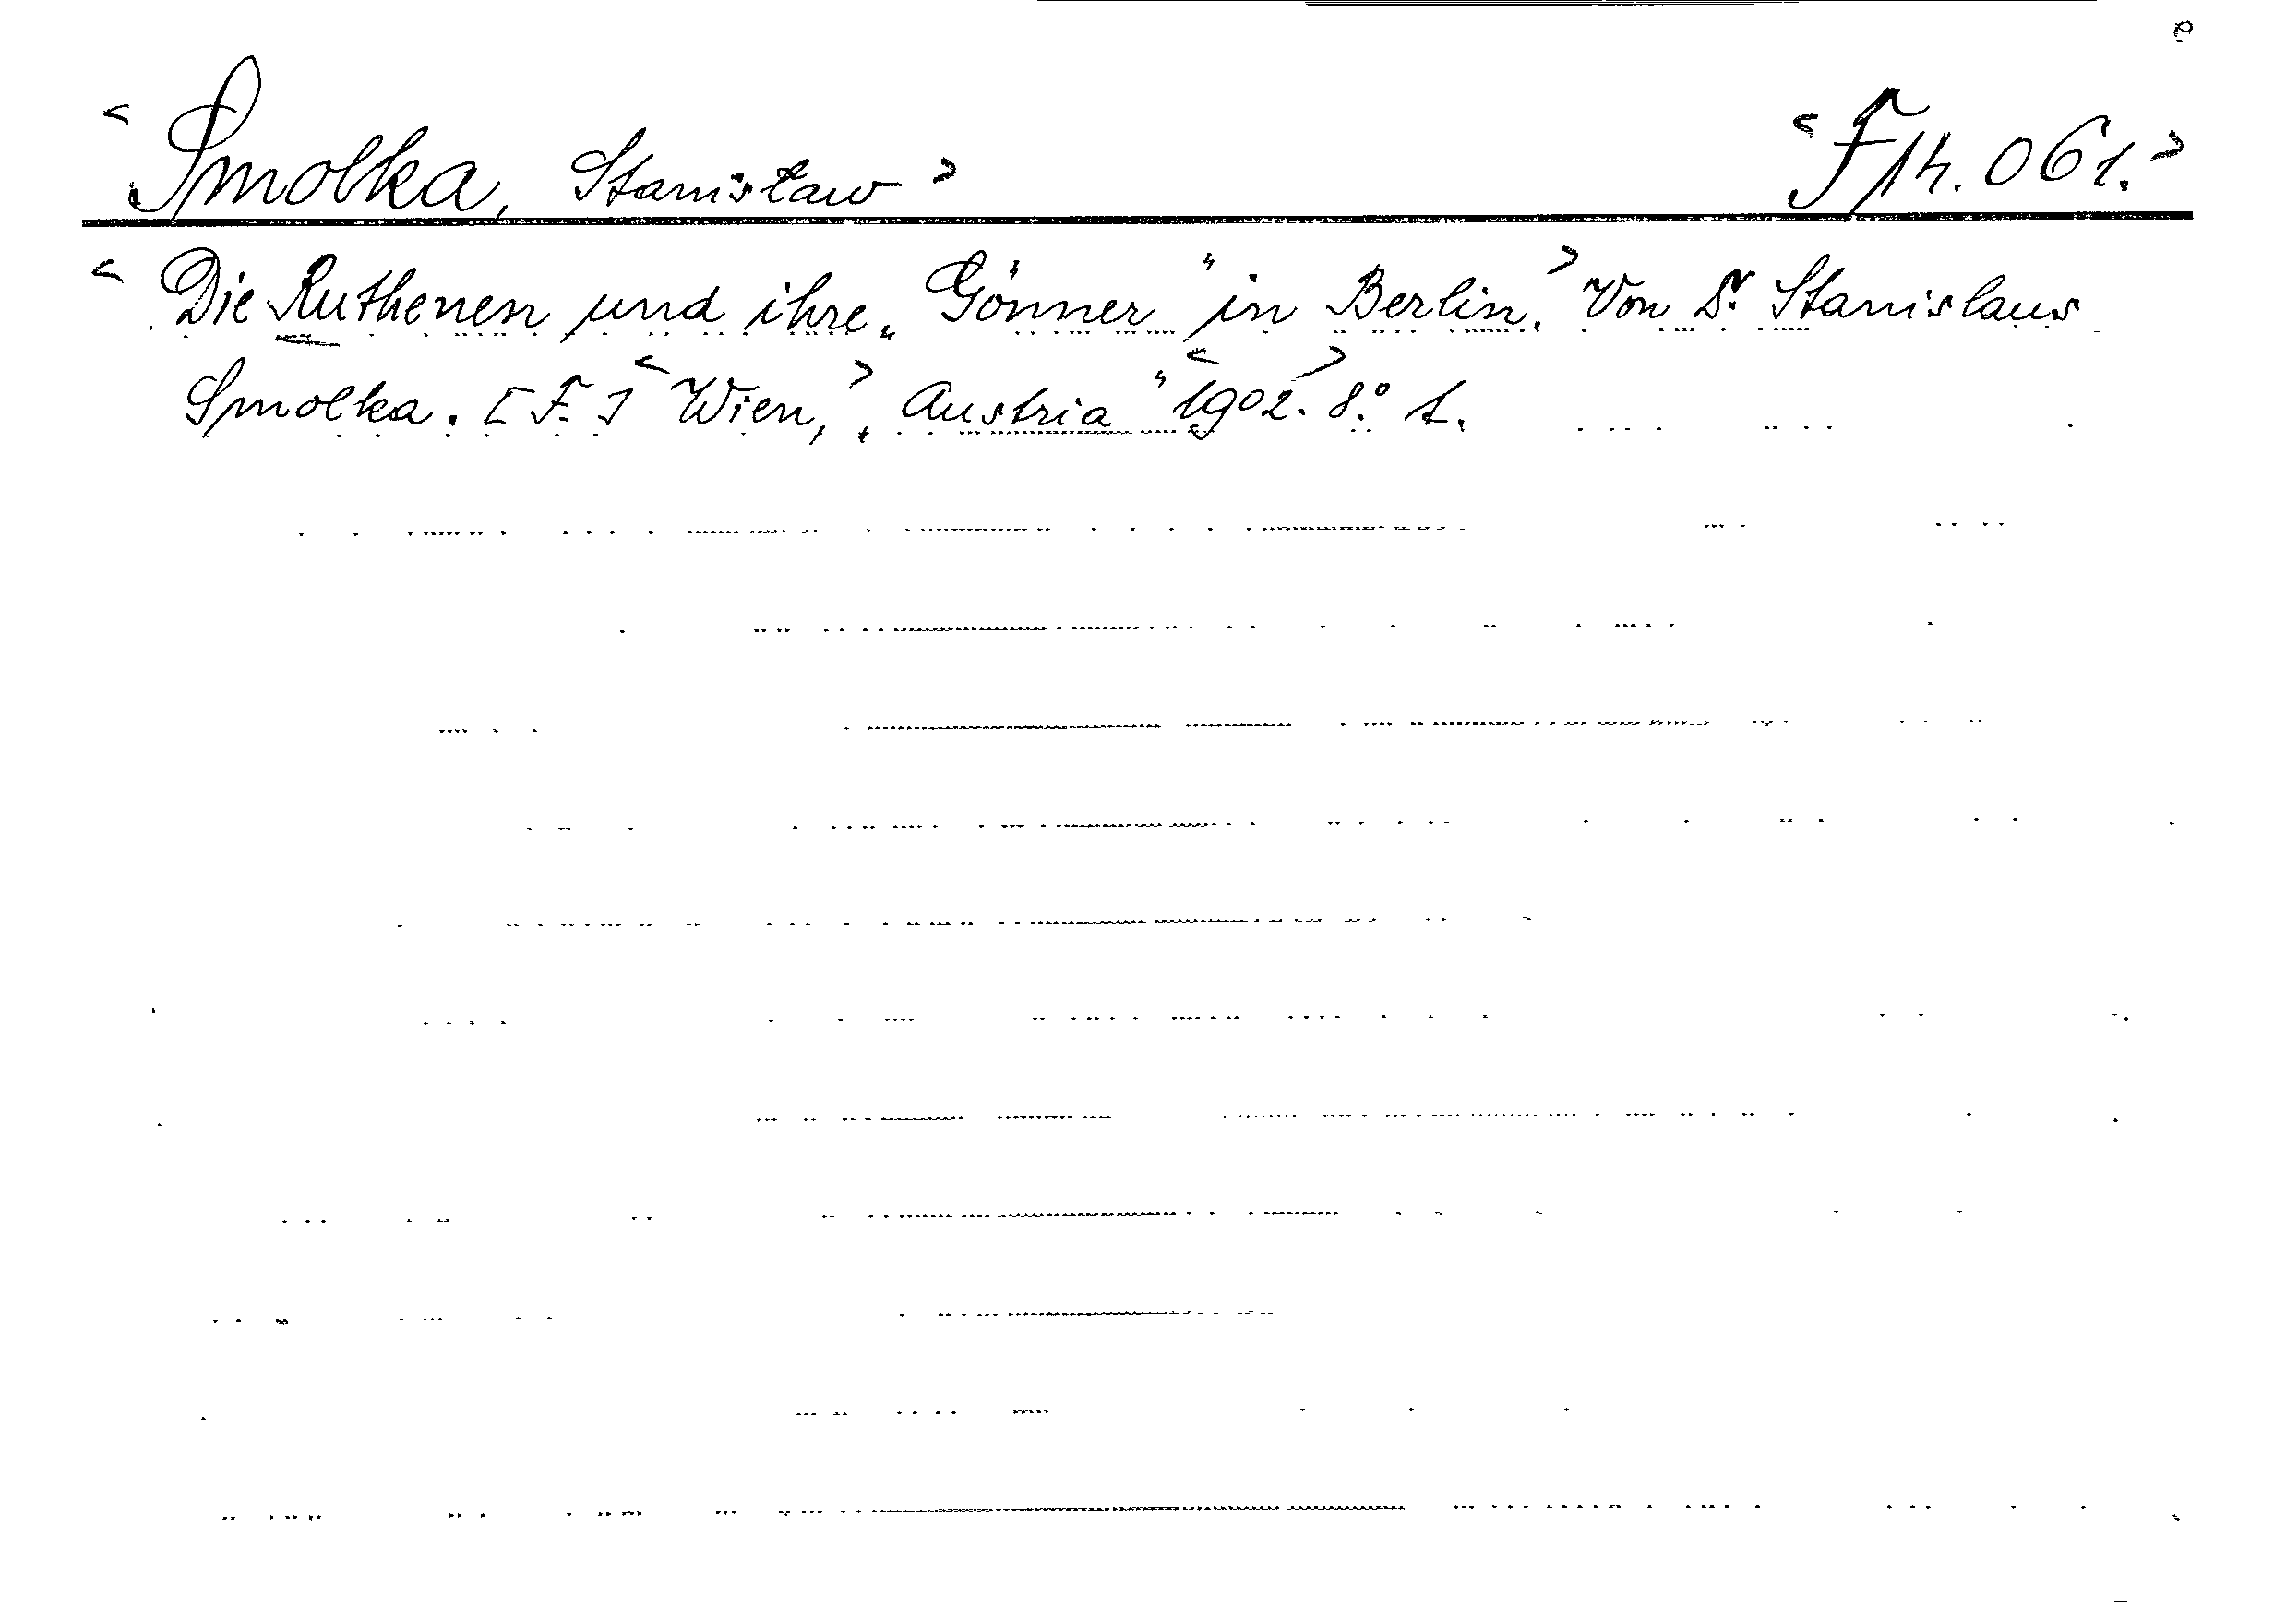 < Smolka, Stanisław > < F 14.061. >
< Die Ruthenen und ihre „Gönner" in Berlin. > Von Dr. Stanislaus
Smolka. [F.] < Wien, > „Austria" < 1902. > 8.° 1.